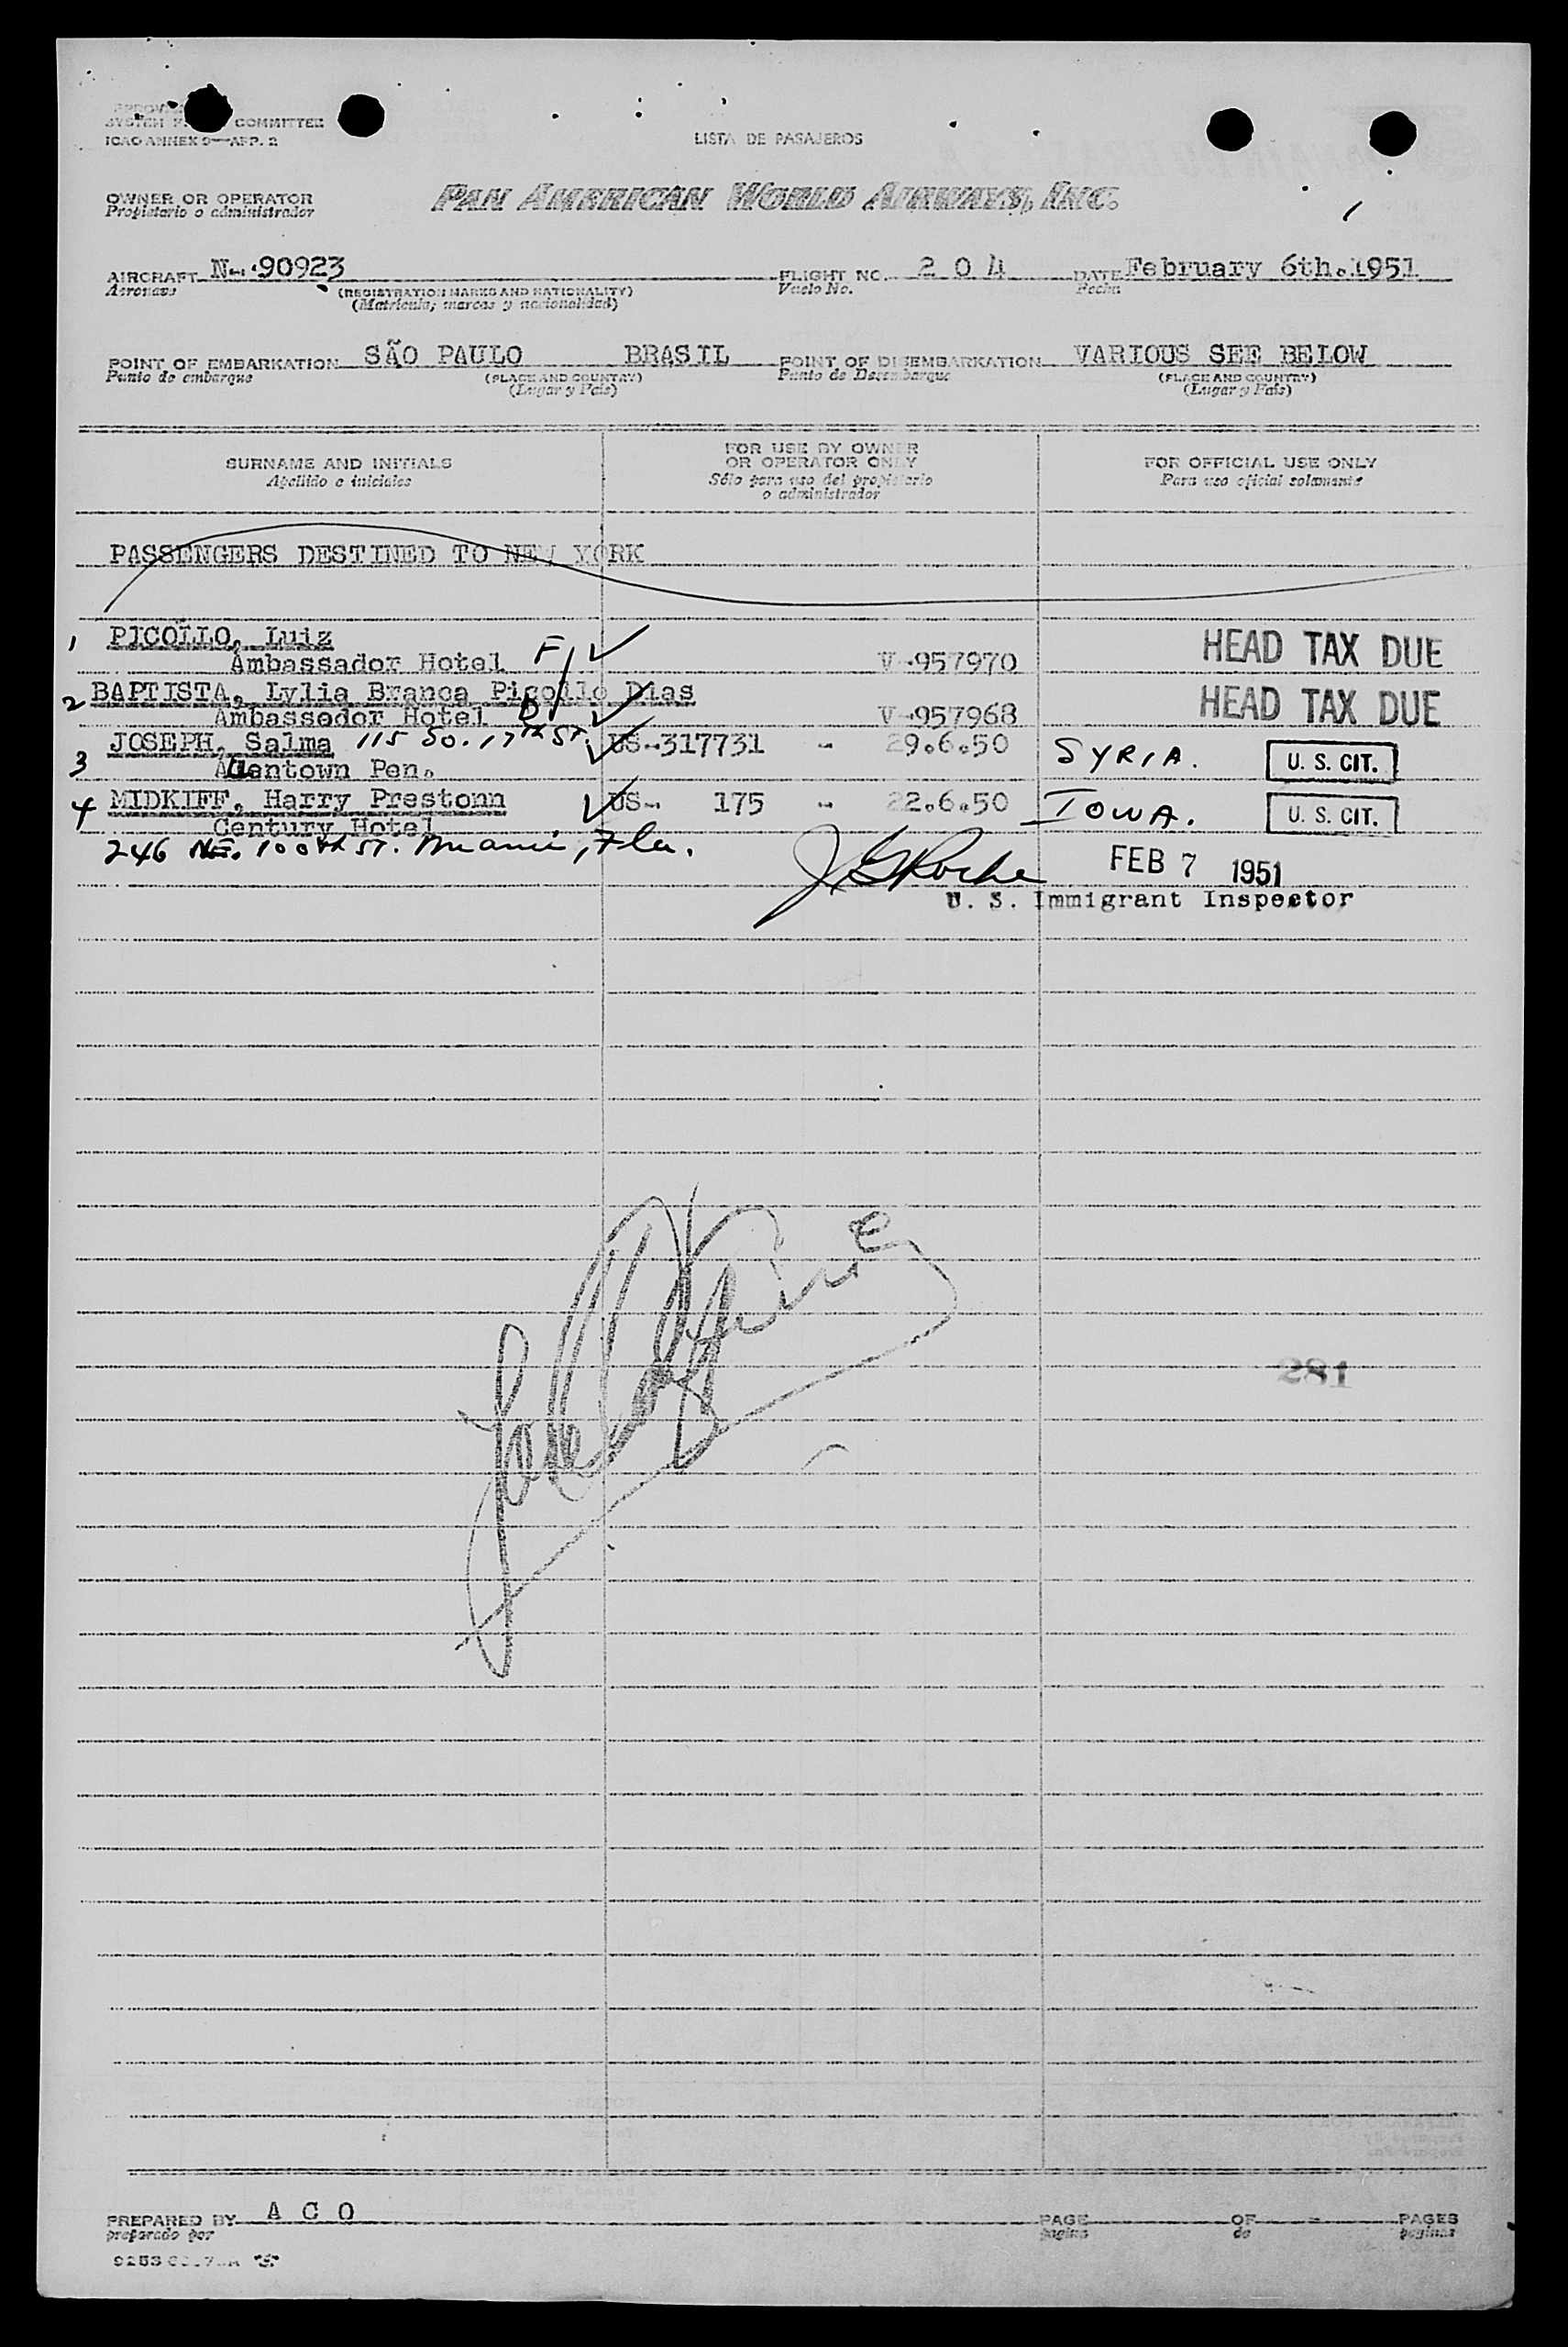 COMMITTEE
ICAO ANNEX 9—APP. 2
LISTA DE PASAJEROS
OWNER OR OPERATOR
Propietario o administrador
PAN AMERICAN WORLD AIRWAYS, INC.
AIRCRAFT N-90923 FLIGHT NO. 204 DATE February 6th.1951
Aeronave (REGISTRATION MARKS AND NATIONALITY) Vuelo No. Fecha
(Matricula, marcas y nacionalidad)
POINT OF EMBARKATION SÃO PAULO BRASIL POINT OF DISEMBARKATION VARIOUS SEE BELOW
Punto de embarque (PLACE AND COUNTRY) Punto de Desembarque (PLACE AND COUNTRY)
(Lugar y País) (Lugar y País)
SURNAME AND INITIALS FOR USE BY OWNER OR OPERATOR ONLY FOR OFFICIAL USE ONLY
Apellido e iniciales Sólo para uso del propietario o administrador Para uso oficial solamente
PASSENGERS DESTINED TO NEW YORK
1 PICOLLO, Luiz HEAD TAX DUE
Ambassador Hotel F/ V-957970
2 BAPTISTA, Lylia Branca Picollo Dias HEAD TAX DUE
Ambassador Hotel V-957968
JOSEPH, Salma 115 So. 17th ST. US-317731 - 29.6.50 SYRIA. U. S. CIT.
3 Allentown Pen.
4 MIDKIFF, Harry Prestonn US- 175 - 22.6.50 IOWA. U. S. CIT.
Century Hotel
246 NE. 100th ST. Miami, Fla.
J. G. Roche FEB 7 1951
U. S. Immigrant Inspector
281
PREPARED BY A C O PAGE OF - PAGES
preparado por pagina de paginas